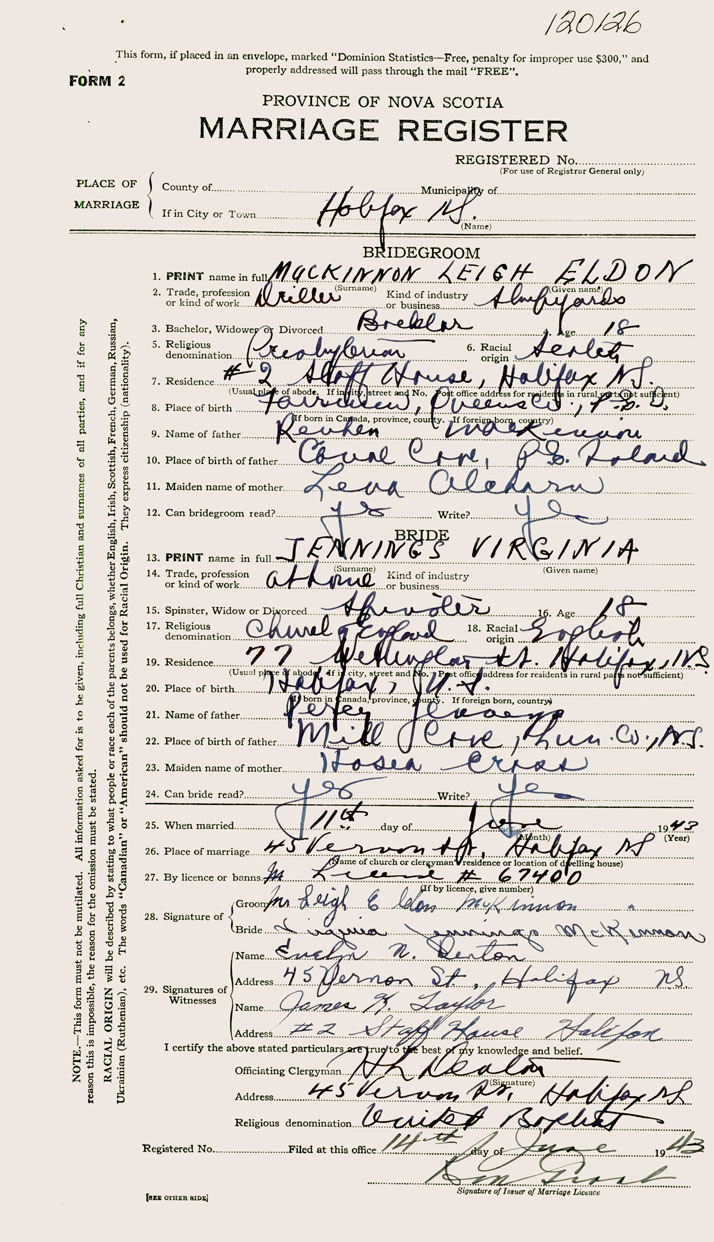 120126
This form, if placed in an envelope, marked "Dominion Statistics—Free, penalty for improper use $300," and
properly addressed will pass through the mail "FREE".
FORM 2
PROVINCE OF NOVA SCOTIA
MARRIAGE REGISTER
REGISTERED No.
(For use of Registrar General only)
PLACE OF MARRIAGE
County of Municipality of
If in City or Town Halifax NS.
(Name)
BRIDEGROOM
1. PRINT name in full MACKINNON LEIGH ELDON
(Surname) (Given name)
2. Trade, profession or kind of work Driller Kind of industry or business Shipyards
3. Bachelor, Widower or Divorced Bachelor 4. Age 18
5. Religious denomination Presbyterian 6. Racial origin Scotch
7. Residence #2 Staff House, Halifax NS.
(Usual place of abode. If in city, street and No. Post office address for residents in rural parts not sufficient)
8. Place of birth Queens Co., P.E.I.
(If born in Canada, province, county. If foreign born, country)
9. Name of father Reuben MacKinnon
10. Place of birth of father Cove, P.E. Island
11. Maiden name of mother Lena
12. Can bridegroom read? yes Write? yes
BRIDE
13. PRINT name in full JENNINGS VIRGINIA
(Surname) (Given name)
14. Trade, profession or kind of work at home Kind of industry or business
15. Spinster, Widow or Divorced Spinster 16. Age 18
17. Religious denomination Church of England 18. Racial origin English
19. Residence 77 St. Halifax, N.S.
(Usual place of abode. If in city, street and No. Post office address for residents in rural parts not sufficient)
20. Place of birth Halifax, N.S.
(If born in Canada, province, county. If foreign born, country)
21. Name of father Percy Jennings
22. Place of birth of father Mill Cove, Lun. Co., N.S.
23. Maiden name of mother Hosea Cross
24. Can bride read? yes Write? yes
25. When married 11th day of June 1943
(Month) (Year)
26. Place of marriage 45 Vernon St., Halifax NS
(Name of church or clergyman's residence or location of dwelling house)
27. By licence or banns M License # 67400
(If by licence, give number)
28. Signature of
Groom Mr Leigh Eldon McKinnon
Bride Virginia Jennings McKinnon
29. Signatures of Witnesses
Name Evelyn N. Denton
Address 45 Vernon St., Halifax NS.
Name James K. Taylor
Address #2 Staff House Halifax
I certify the above stated particulars are true to the best of my knowledge and belief.
Officiating Clergyman H L Denton
(Signature)
Address 45 Vernon St., Halifax NS
Religious denomination United Baptist
Registered No. Filed at this office 14th day of June 1943
Signature of Issuer of Marriage Licence
[SEE OTHER SIDE]
NOTE.—This form must not be mutilated. All information asked for is to be given, including full Christian and surnames of all parties, and if for any
reason this is impossible, the reason for the omission must be stated.
RACIAL ORIGIN will be described by stating to what people or race each of the parents belongs, whether English, Irish, Scottish, French, German, Russian,
Ukrainian (Ruthenian), etc. The words "Canadian" or "American" should not be used for Racial Origin. They express citizenship (nationality).